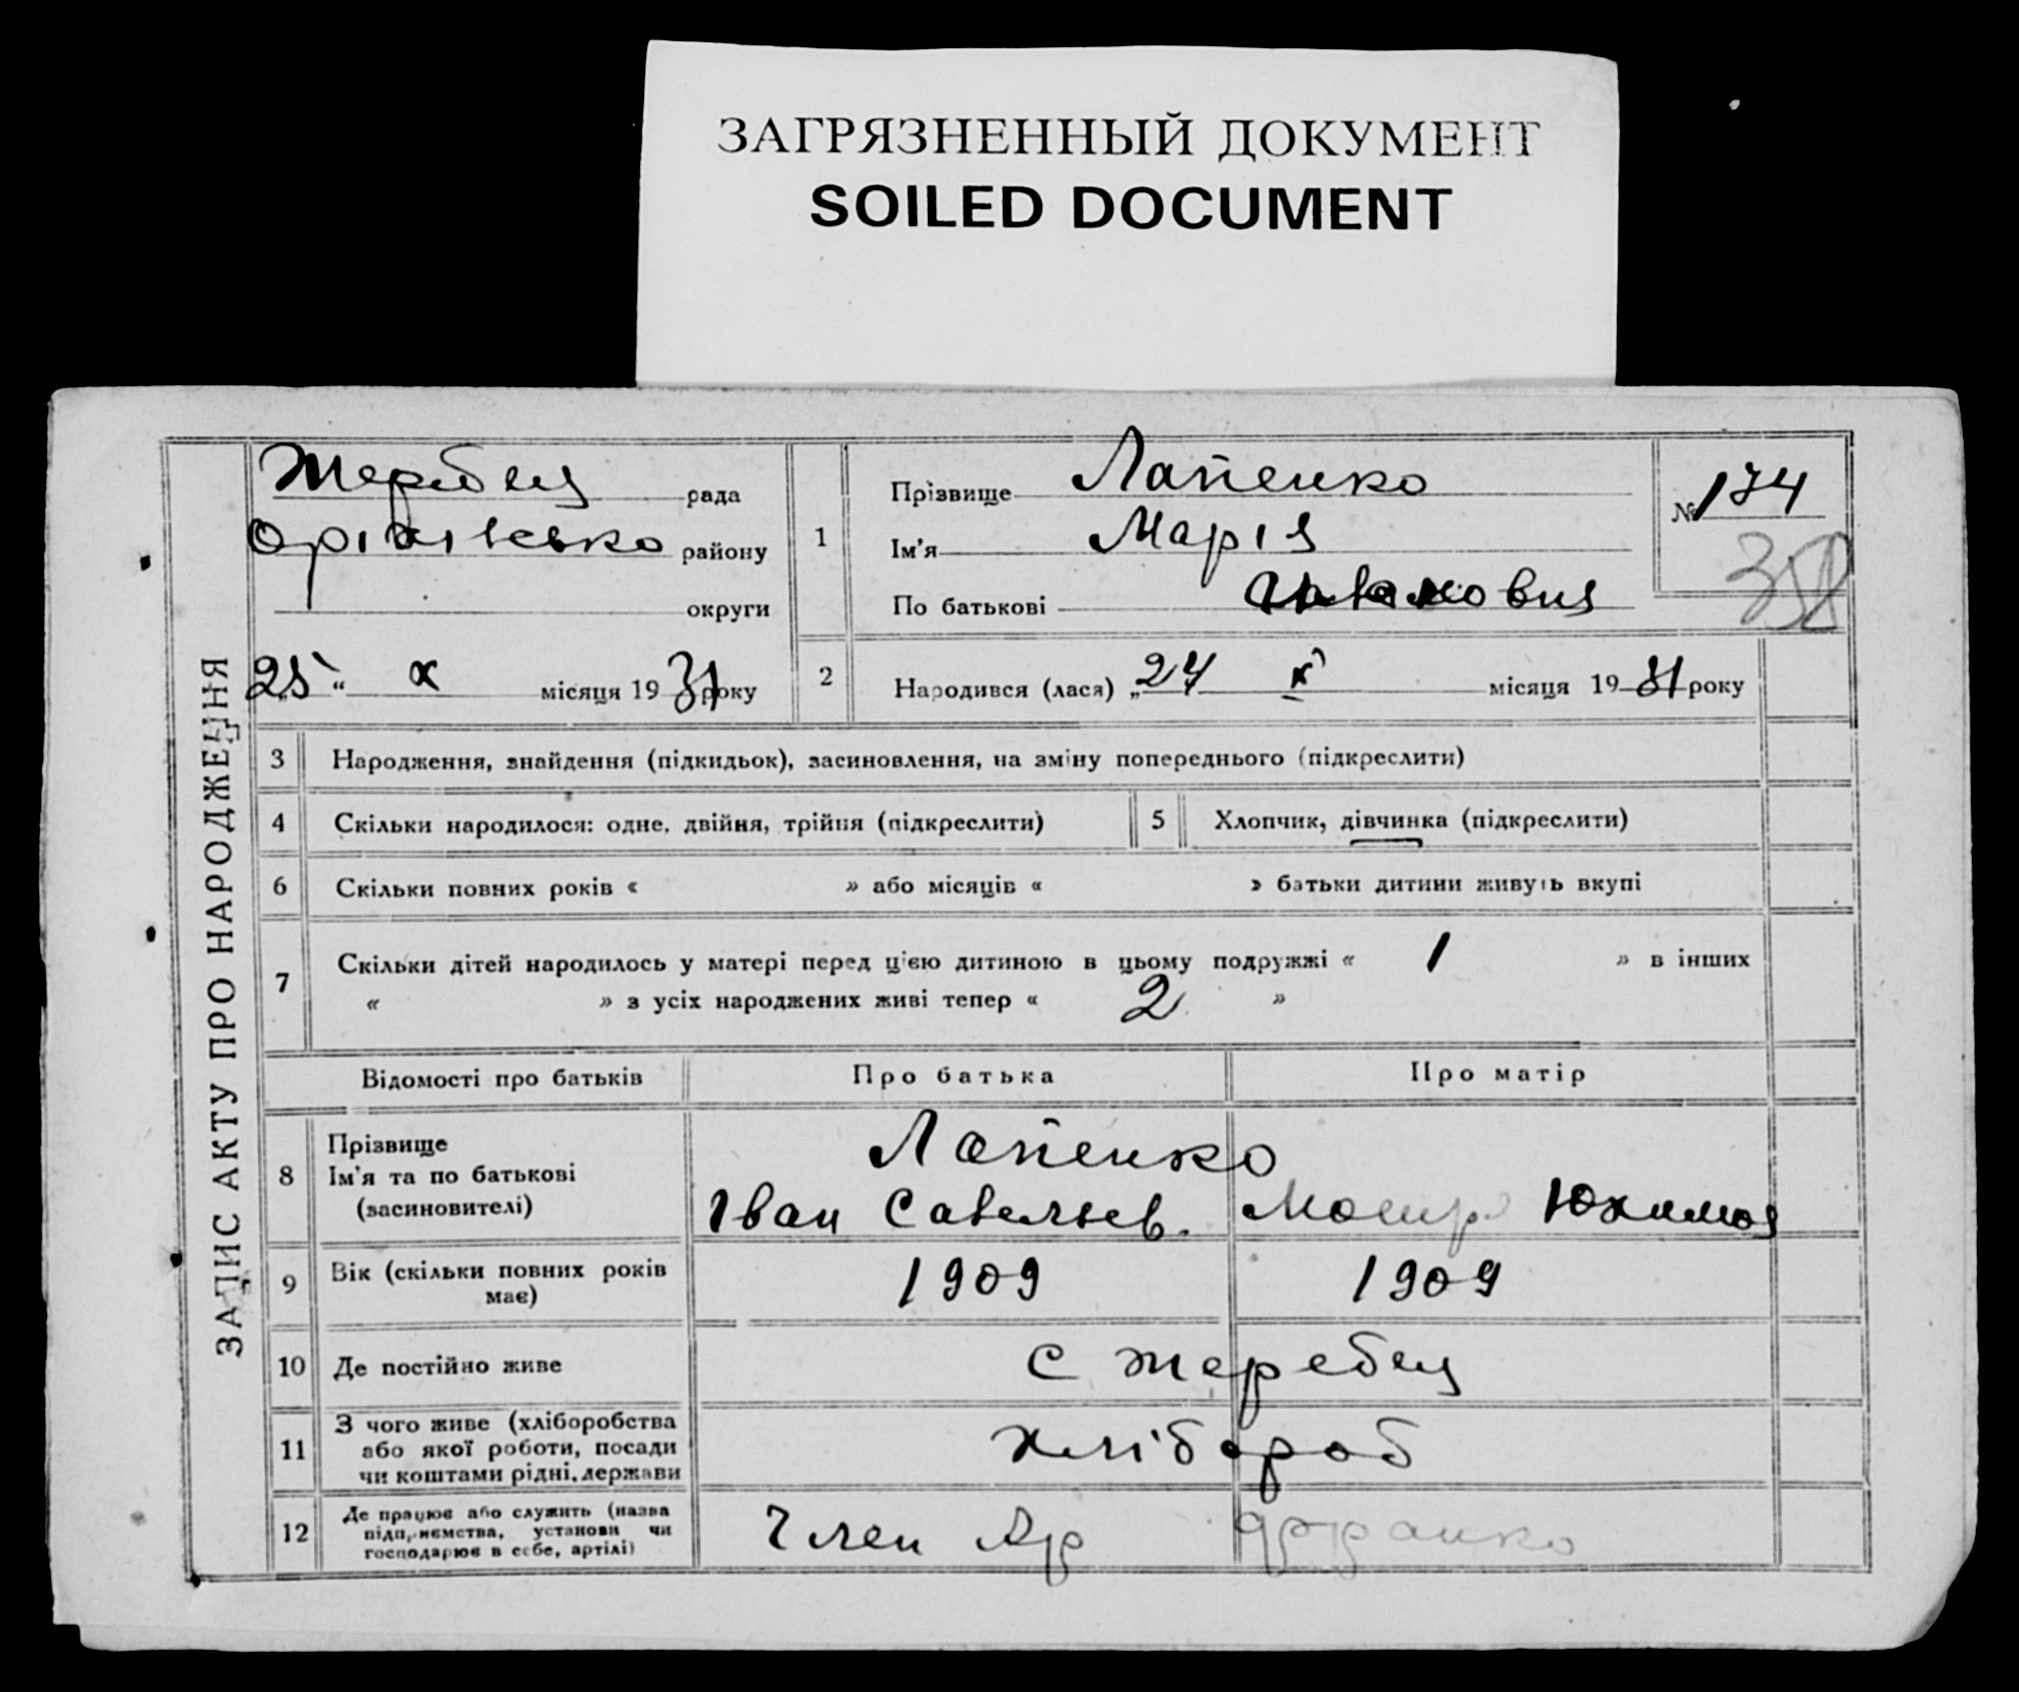 ЗАГРЯЗНЕННЫЙ ДОКУМЕНТ
SOILED DOCUMENT
ЗАПИС АКТУ ПРО НАРОДЖЕННЯ
Жеребец рада
Оріхівсько району
округи
„25“ X місяця 1931 року
1
Прізвище Лапенко
Ім'я Марія
По батькові
№ 174
358
2 Народився (лася) „24 X місяця 1931 року
3 Народження, знайдення (підкидьок), засиновлення, на зміну попереднього (підкреслити)
4 Скільки народилося: одне, двійня, трійня (підкреслити)
5 Хлопчик, дівчинка (підкреслити)
6 Скільки повних років « » або місяців « » батьки дитини живуть вкупі
7 Скільки дітей народилось у матері перед цією дитиною в цьому подружжі « 1 » в інших
« » з усіх народжених живі тепер « 2 »
Відомості про батьків Про батька Про матір
8 Прізвище
Ім'я та по батькові
(засиновителі)
Лапенко
Іван Савельев.
9 Вік (скільки повних років
має)
1909 1909
10 Де постійно живе с Жеребец
11 З чого живе (хліборобства
або якої роботи, посади
чи коштами рідні, держави
хлібороб
12 Де працює або служить (назва
підприємства, установи чи
господарює в себе, артілі)
Член Ар Франко